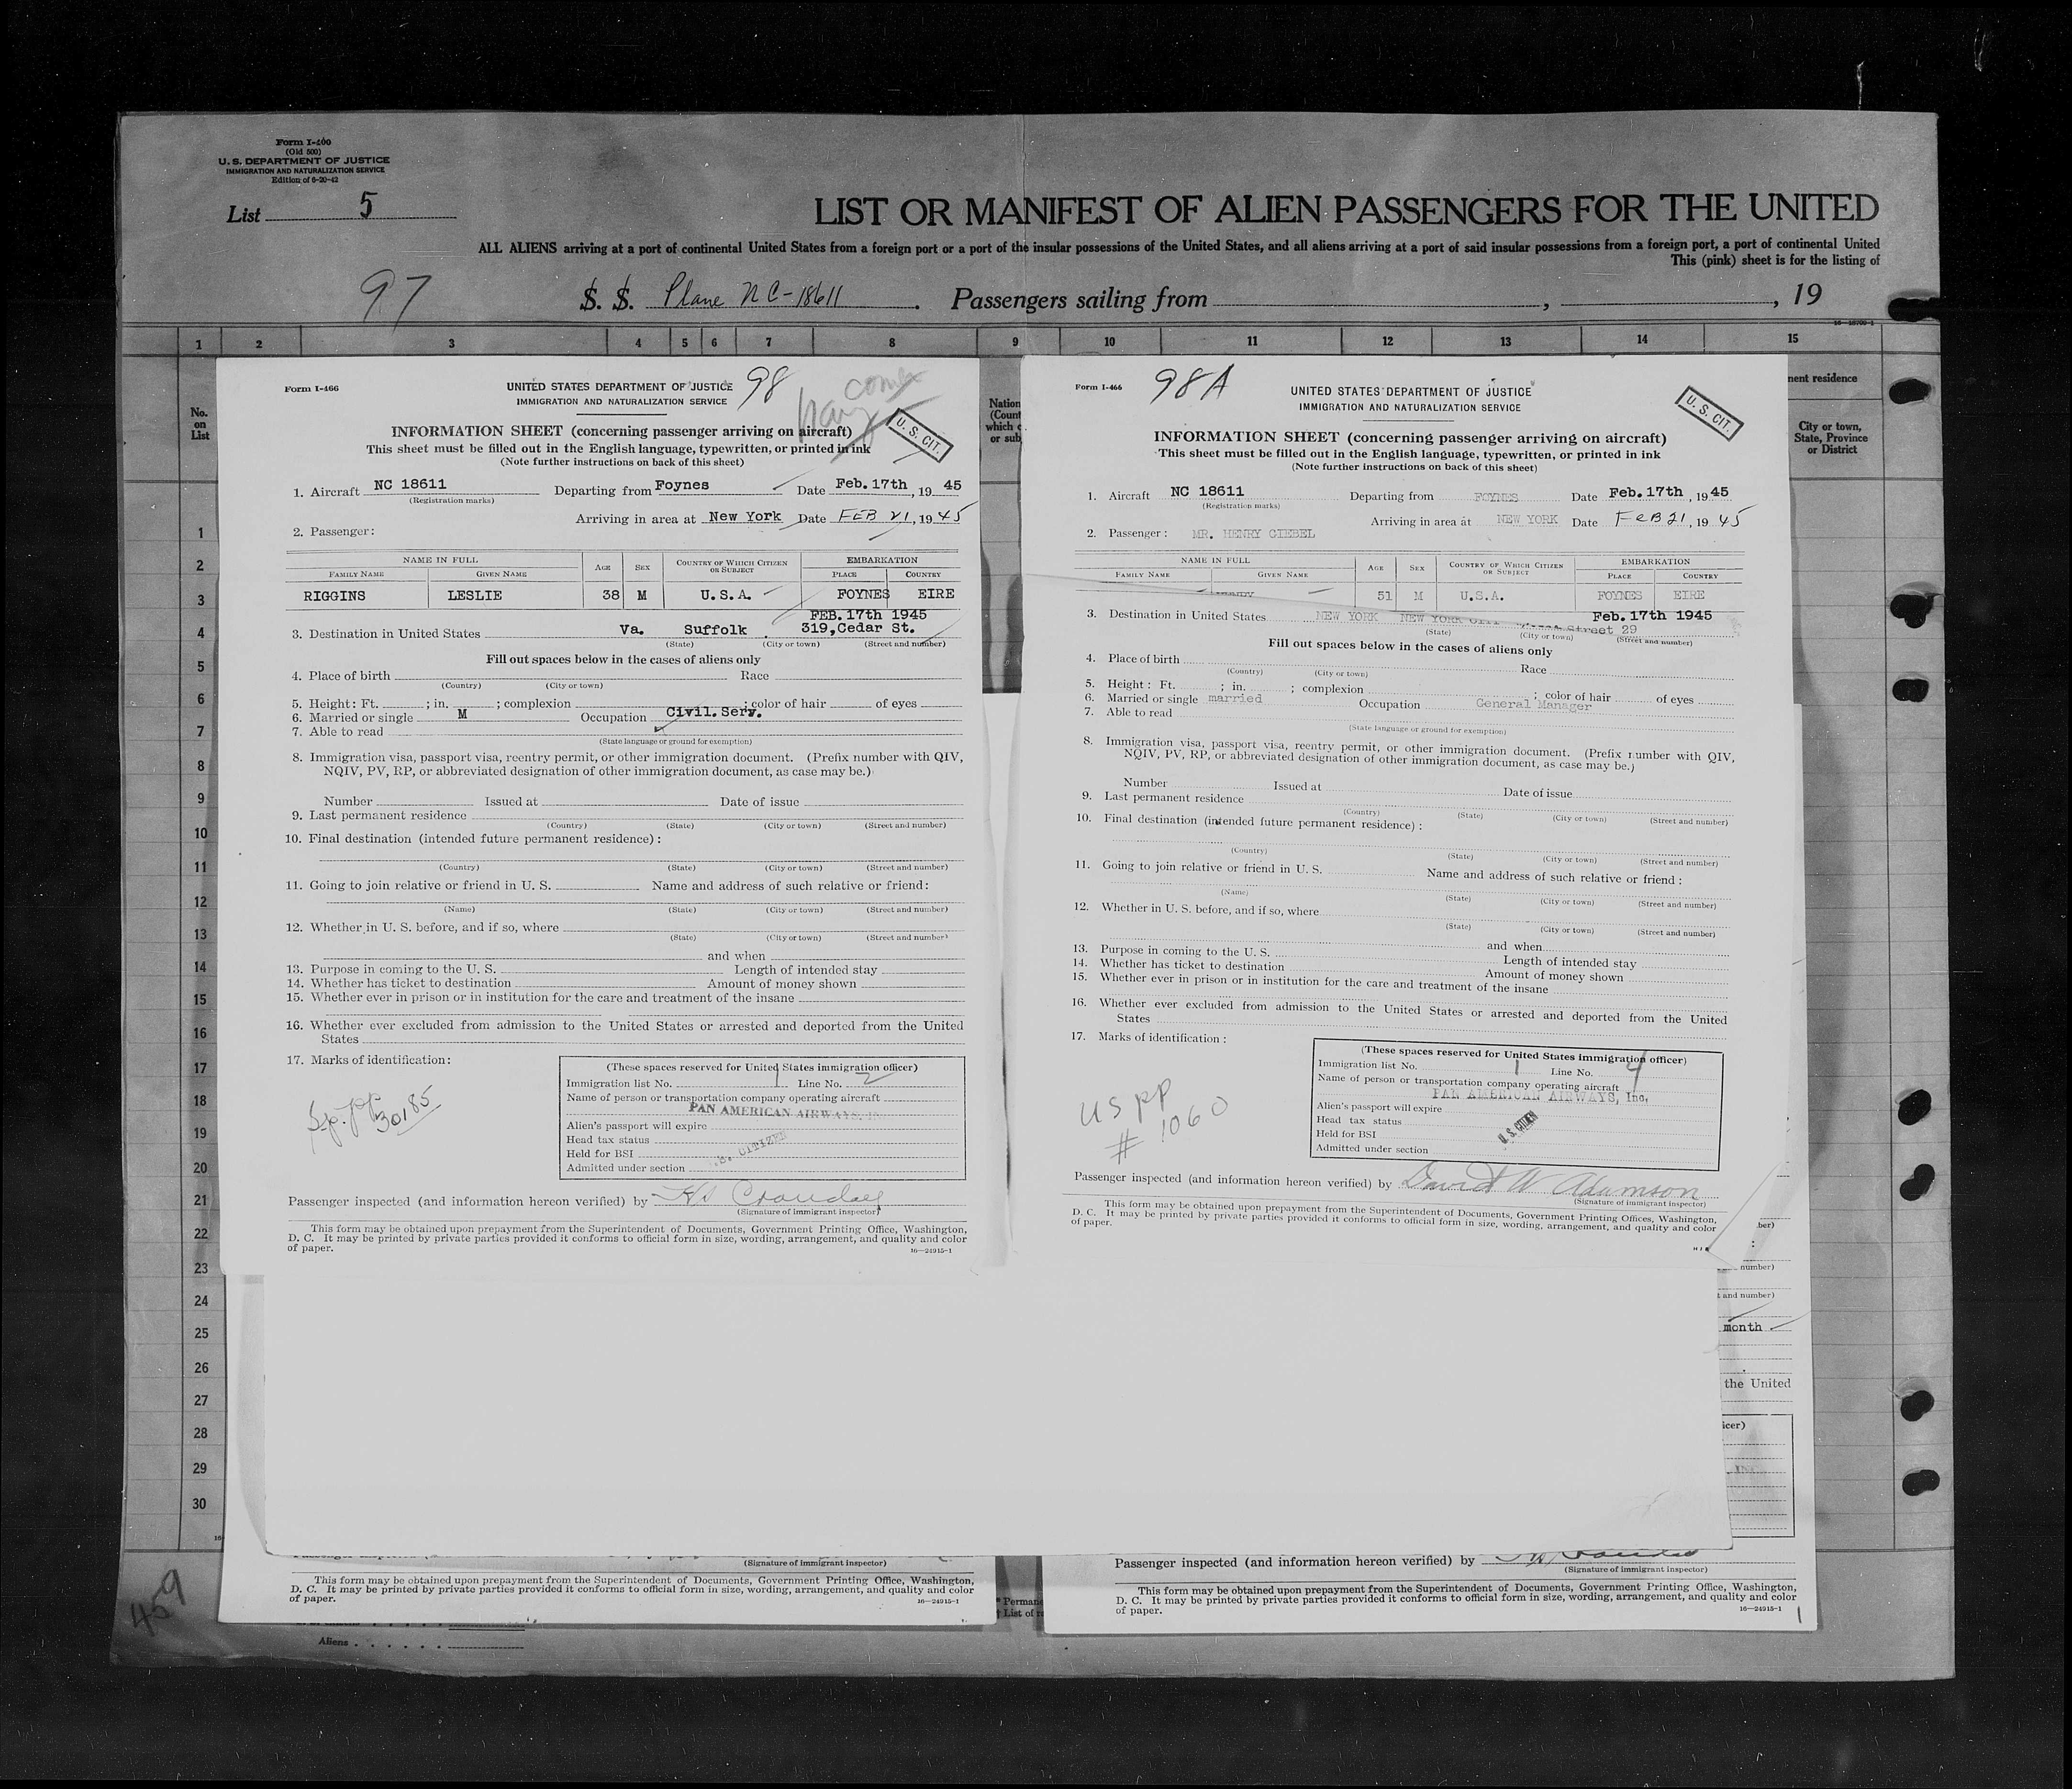 Form I-400
(Old 500)
U. S. DEPARTMENT OF JUSTICE
IMMIGRATION AND NATURALIZATION SERVICE
Edition of 6-20-42
List 5
LIST OR MANIFEST OF ALIEN PASSENGERS FOR THE UNITED
ALL ALIENS arriving at a port of continental United States from a foreign port or a port of the insular possessions of the United States, and all aliens arriving at a port of said insular possessions from a foreign port, a port of continental United
This (pink) sheet is for the listing of
97
S. S. Plane NC-18611. Passengers sailing from , , 19
1 2 3 4 5 6 7 8 9 10 11 12 13 14 15
No. on List
1
2
3
4
5
6
7
8
9
10
11
12
13
14
15
16
17
18
19
20
21
22
23
24
25
26
27
28
29
30
Form I-466
98
UNITED STATES DEPARTMENT OF JUSTICE
IMMIGRATION AND NATURALIZATION SERVICE
U. S. CIT.
INFORMATION SHEET (concerning passenger arriving on aircraft)
This sheet must be filled out in the English language, typewritten, or printed in ink
(Note further instructions on back of this sheet)
1. Aircraft NC 18611 Departing from Foynes Date Feb. 17th, 19 45
(Registration marks)
Arriving in area at New York Date FEB 21, 19 45
2. Passenger:
NAME IN FULL AGE SEX COUNTRY OF WHICH CITIZEN OR SUBJECT EMBARKATION
FAMILY NAME GIVEN NAME PLACE COUNTRY
RIGGINS LESLIE 38 M U.S.A. FOYNES EIRE
FEB. 17th 1945
3. Destination in United States Va. Suffolk 319,Cedar St.
(State) (City or town) (Street and number)
Fill out spaces below in the cases of aliens only
4. Place of birth Race
(Country) (City or town)
5. Height: Ft. ; in. ; complexion ; color of hair of eyes
6. Married or single M Occupation Civil. Serv.
7. Able to read
(State language or ground for exemption)
8. Immigration visa, passport visa, reentry permit, or other immigration document. (Prefix number with QIV,
NQIV, PV, RP, or abbreviated designation of other immigration document, as case may be.)
Number Issued at Date of issue
9. Last permanent residence
(Country) (State) (City or town) (Street and number)
10. Final destination (intended future permanent residence):
(Country) (State) (City or town) (Street and number)
11. Going to join relative or friend in U. S. Name and address of such relative or friend:
(Name) (State) (City or town) (Street and number)
12. Whether in U. S. before, and if so, where
(State) (City or town) (Street and number)
and when
13. Purpose in coming to the U. S. Length of intended stay
14. Whether has ticket to destination Amount of money shown
15. Whether ever in prison or in institution for the care and treatment of the insane
16. Whether ever excluded from admission to the United States or arrested and deported from the United
States
17. Marks of identification:
Sp. pp 30185
(These spaces reserved for United States immigration officer)
Immigration list No. 1 Line No. 2
Name of person or transportation company operating aircraft
PAN AMERICAN AIRWAYS,
Alien's passport will expire
Head tax status
Held for BSI
U.S. CITIZEN
Admitted under section
Passenger inspected (and information hereon verified) by
(Signature of immigrant inspector)
This form may be obtained upon prepayment from the Superintendent of Documents, Government Printing Office, Washington,
D. C. It may be printed by private parties provided it conforms to official form in size, wording, arrangement, and quality and color
of paper.
16—24915-1
Form I-466
98A
UNITED STATES DEPARTMENT OF JUSTICE
IMMIGRATION AND NATURALIZATION SERVICE
U. S. CIT.
INFORMATION SHEET (concerning passenger arriving on aircraft)
This sheet must be filled out in the English language, typewritten, or printed in ink
(Note further instructions on back of this sheet)
1. Aircraft NC 18611 Departing from FOYNES Date Feb. 17th, 19 45
(Registration marks)
Arriving in area at NEW YORK Date FEB 21, 19 45
2. Passenger: MR. HENRY GIEBEL
NAME IN FULL AGE SEX COUNTRY OF WHICH CITIZEN OR SUBJECT EMBARKATION
FAMILY NAME GIVEN NAME PLACE COUNTRY
51 M U.S.A. FOYNES EIRE
Feb. 17th 1945
3. Destination in United States NEW YORK NEW YORK CITY Street 29
(State) (City or town) (Street and number)
Fill out spaces below in the cases of aliens only
4. Place of birth Race
(Country) (City or town)
5. Height: Ft. ; in. ; complexion ; color of hair of eyes
6. Married or single married Occupation General Manager
7. Able to read
(State language or ground for exemption)
8. Immigration visa, passport visa, reentry permit, or other immigration document. (Prefix number with QIV,
NQIV, PV, RP, or abbreviated designation of other immigration document, as case may be.)
Number Issued at Date of issue
9. Last permanent residence
(Country) (State) (City or town) (Street and number)
10. Final destination (intended future permanent residence):
(Country) (State) (City or town) (Street and number)
11. Going to join relative or friend in U. S. Name and address of such relative or friend:
(Name) (State) (City or town) (Street and number)
12. Whether in U. S. before, and if so, where
(State) (City or town) (Street and number)
and when
13. Purpose in coming to the U. S. Length of intended stay
14. Whether has ticket to destination Amount of money shown
15. Whether ever in prison or in institution for the care and treatment of the insane
16. Whether ever excluded from admission to the United States or arrested and deported from the United
States
17. Marks of identification:
US pp
# 1060
(These spaces reserved for United States immigration officer)
Immigration list No. 1 Line No. 4
Name of person or transportation company operating aircraft
PAN AMERICAN AIRWAYS, Inc.
Alien's passport will expire
Head tax status
U. S. CITIZEN
Held for BSI
Admitted under section
Passenger inspected (and information hereon verified) by David W Adamson
(Signature of immigrant inspector)
This form may be obtained upon prepayment from the Superintendent of Documents, Government Printing Offices, Washington,
D. C. It may be printed by private parties provided it conforms to official form in size, wording, arrangement, and quality and color
of paper.
nent residence
City or town, State, Province or District
number)
t and number)
month
the United
icer)
(Signature of immigrant inspector)
This form may be obtained upon prepayment from the Superintendent of Documents, Government Printing Office, Washington,
D. C. It may be printed by private parties provided it conforms to official form in size, wording, arrangement, and quality and color
of paper.
16—24915-1
Passenger inspected (and information hereon verified) by
(Signature of immigrant inspector)
This form may be obtained upon prepayment from the Superintendent of Documents, Government Printing Office, Washington,
D. C. It may be printed by private parties provided it conforms to official form in size, wording, arrangement, and quality and color
of paper.
16—24915-1
* Perman
† List of r
Aliens
459